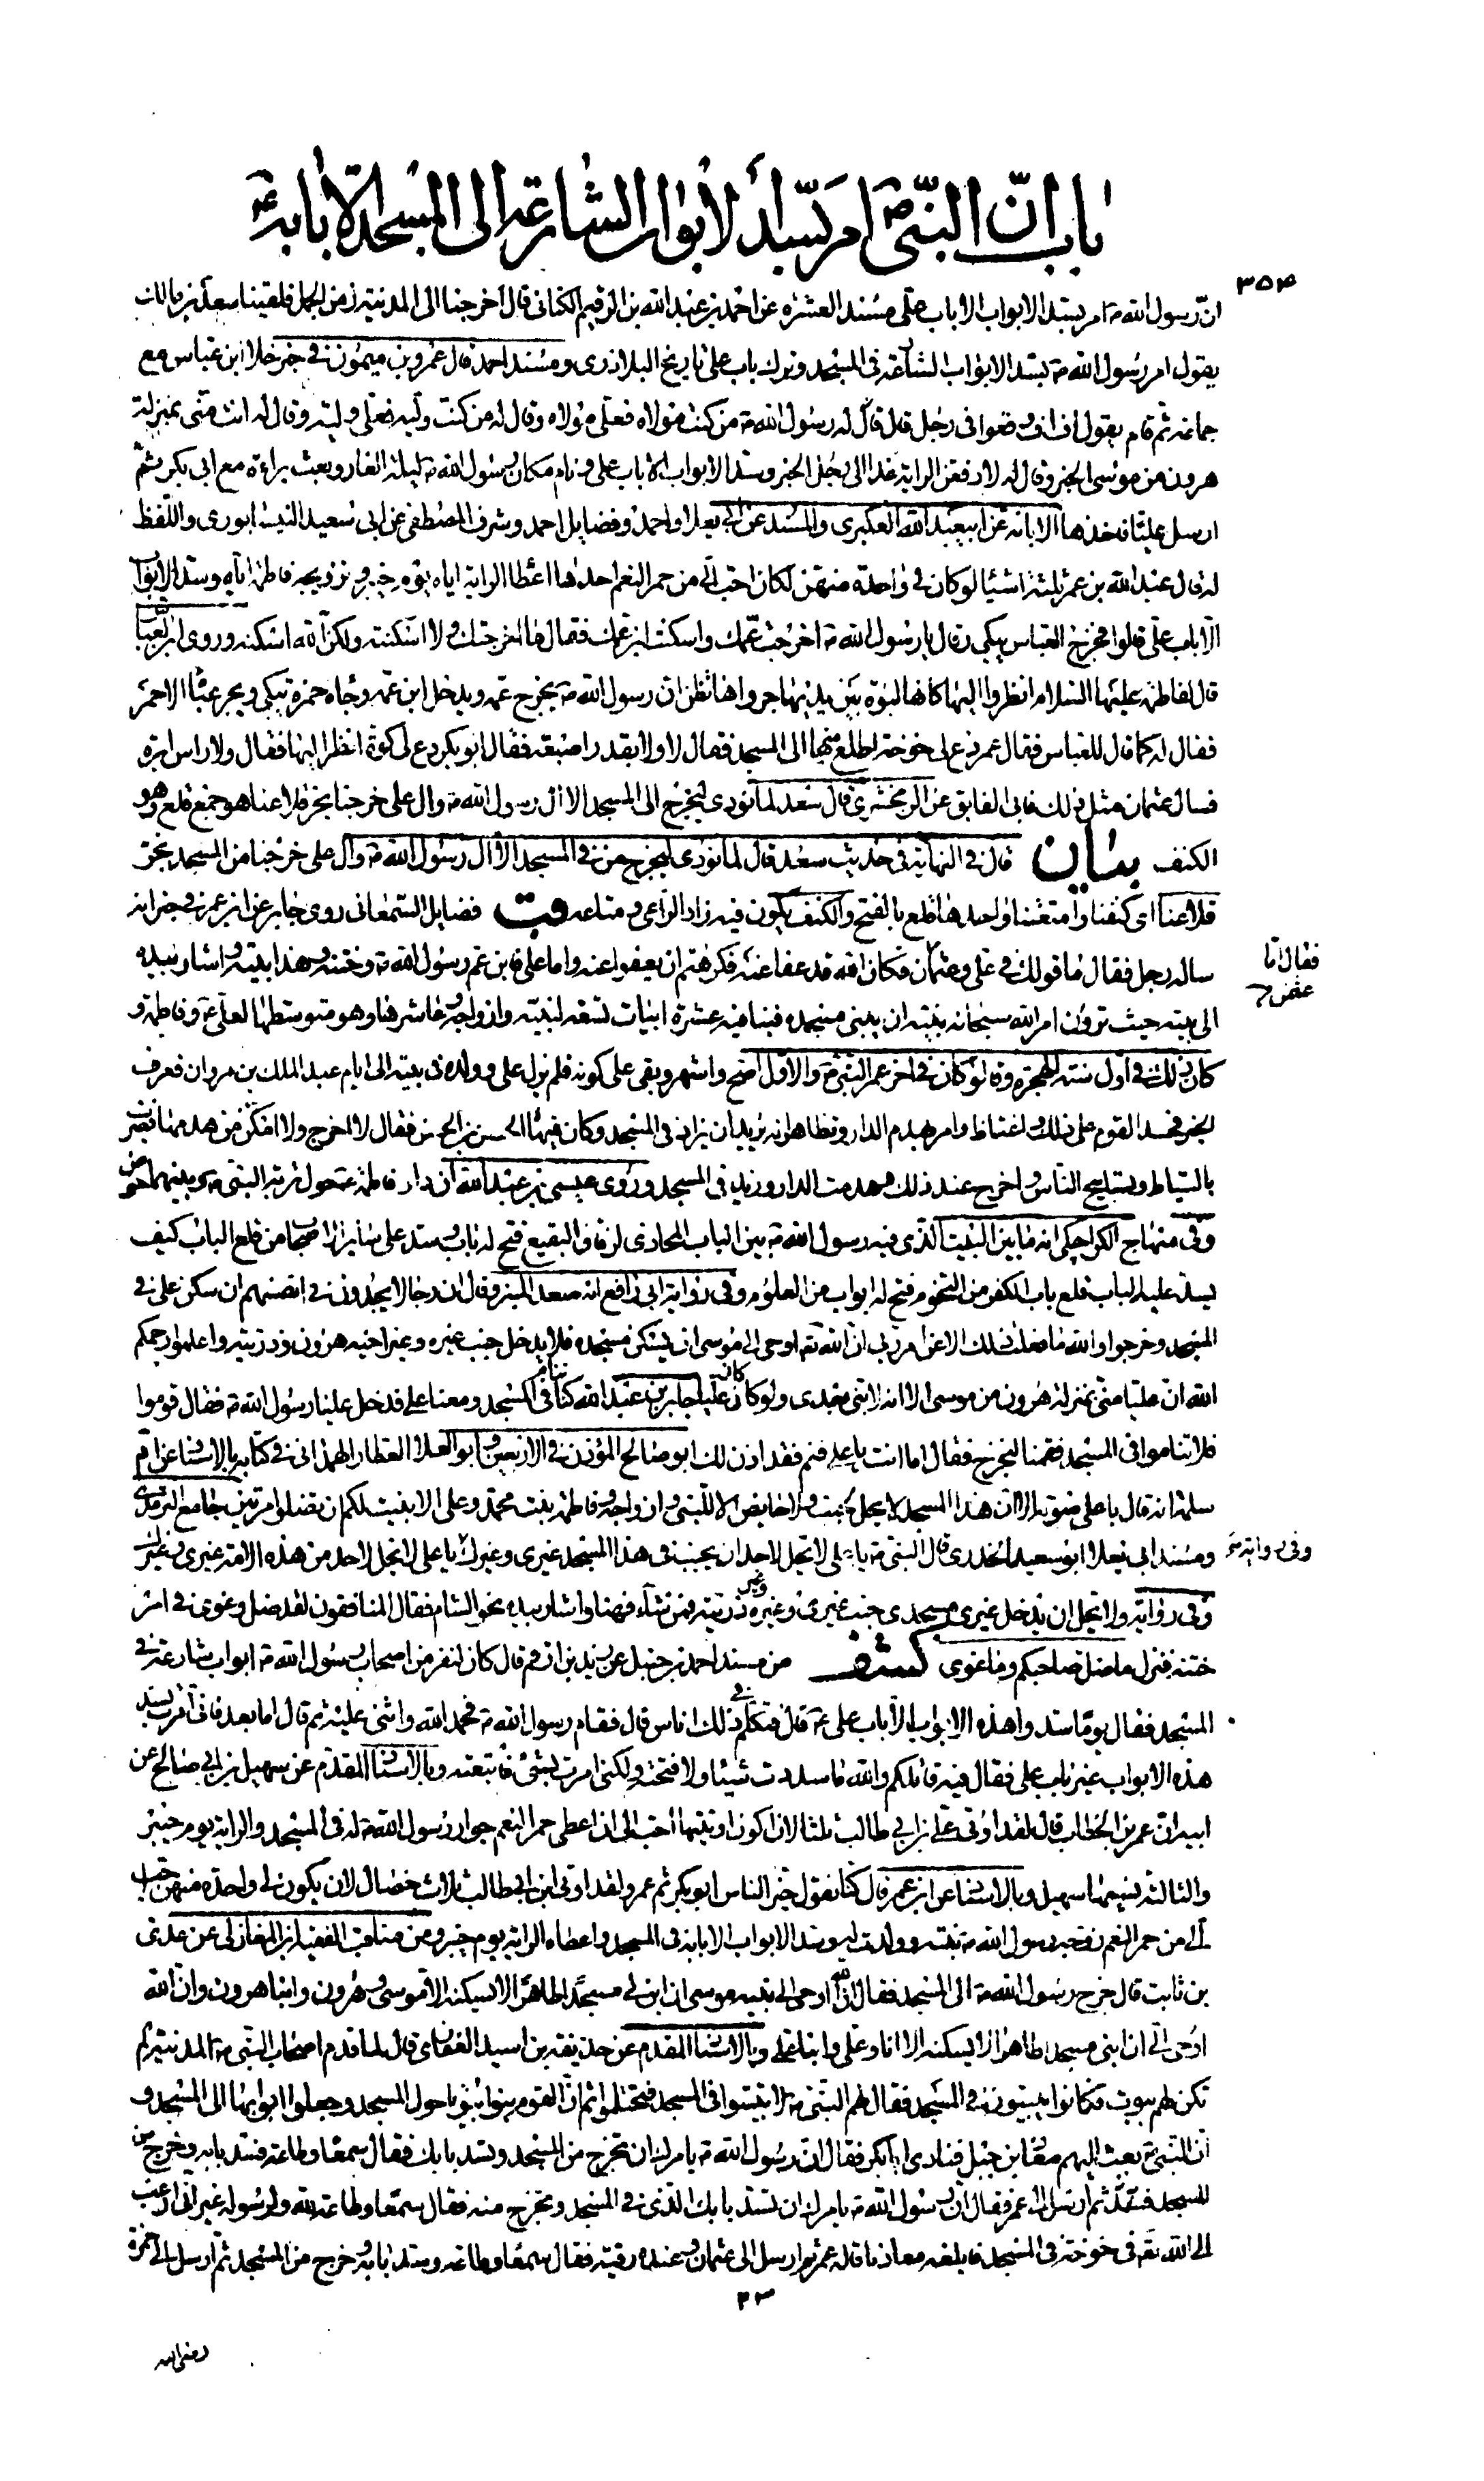 باب انّ النبّى ص امر بسدّ الأبواب الشارعة الى المسجد الّا بابه ع
٣٥٣
انّ رسول الله ص امر بسد الابواب الا باب على مسند العشرة عن احمد بن عبد الله بن الرقيم الكنانى قال خرجنا الى المدينة زمن الجمل فلقينا سعد بن مالك
يقول امر رسول الله ص بسد الابواب الشارعة فى المسجد وترك باب على تاريخ البلاذرى ومسند احمد قال عمرو بن ميمون فى خبر خلا ابن عباس مع
جماعة ثم قام يقول اف اف وقعوا فى رجل قال له رسول الله ص من كنت مولاه فعلى مولاه وقال له من كنت وليه فعلى وليه وقال له انت منى بمنزلة
هرون من موسى الخبر وقال له لادفعن الراية غدا الى رجل الخبر وسد الابواب الا باب على ونام مكان رسول الله ص ليلة الغار وبعث براءة مع ابى بكر ثم
ارسل عليا فاخذها الابانة عن ابى عبد الله العكبرى والمسند عن ابى يعلى واحمد وفضايل احمد وشرف المصطفى عن ابى سعيد النيسابورى واللفظ
له قال عبد الله بن عمر ثلثة اشيا لو كان لى واحدة منهن لكان احب الى من حمر النعم احدها اعطا الراية اياه يوم خيبر وتزويجه فاطمة اياه وسد الابواب
الا باب على قالوا فخرج العباس يبكى وقال يا رسول الله ص اخرجت عمك واسكنت ابن عمك فقال ما اخرجتك ولا اسكنته ولكن الله اسكنه وروى ان العباس
قال لفاطمة عليها السلام انظروا اليها كانها لبوة بين يديها جرواها تظن ان رسول الله ص يخرج عمه ويدخل ابن عمه وجاء حمزة يبكى ويجر عباه الاحمر
فقال له كما قال للعباس فقال عمر دع لى خوخة اطلع منها الى المسجد فقال لا ولا بقدر اصبعة فقال ابو بكر دع لى كوة انظر اليها فقال ولا راس ابرة
فسال عثمان مثل ذلك فابى الفايق عن الزمخشرى قال سعد لما نودى ليخرج من فى المسجد الا ال رسول الله ص وال على خرجنا نجر قلاعنا هو جمع قلع وهو
الكنف بيان قال فى النهاية فى حديث سعد قال لما نودى ليخرج من فى المسجد الا ال رسول الله ص وال على خرجنا من المسجد نجر
قلاعنا اى كنفنا وامتعتنا واحدها قلع بالفتح والكنف يكون فيه زاد الراعى ومتاعه قب فضايل السمعانى روى جابر عن ابن عمر فى خبر انه
ساله رجل فقال ما قولك فى على وعثمان فكان الله قد عفا عنه فكرهتم ان يعفو عنه واما على فابن عم رسول الله ص وختنه وهذا بيته واشار بيده
فقال اما
عثمن
الى بيته حيث ترون امر الله سبحانه نبيه ان يبنى مسجده فبنا فيه عشرة ابيات تسعة لبنيه وازواجه وعاشرها وهو متوسطها لعلى ع وفاطمة و
كان ذلك فى اول سنة الهجرة وقالوا كان فى اخر عمر النبى ص والاول اصح واشهر وبقى على كونه فلم يزل على وولده فى بيته الى ايام عبد الملك بن مروان فعرف
الخبر فحسد القوم على ذلك واغتاظ وامر بهدم الدار وتظاهر انه يريد ان يزاد فى المسجد وكان فيها الحسن بن الحسن فقال لا اخرج ولا امكن من هدمها فضرب
بالسياط وتصايح الناس واخرج عند ذلك وهدمت الدار وزيد فى المسجد وروى عيسى بن عبد الله ان دار فاطمة ع حول تربة النبى ص وبينهما حوض
وفى منهاج الكراجكى انه ما بين البيت الذى فيه رسول الله ص بين الباب المحاذى لزقاق البقيع فتح له باب وسد على ساير الاصحاب من قلع الباب كيف
يسد عليه الباب قلع باب الكفر من التخوم فتح له ابواب من العلوم وفى رواية ابى رافع انه صعد المنبر وقال ان رجالا يجدون فى انفسهم ان سكن على فى
المسجد وخرجوا والله ما فعلت ذلك الا عن امر ربى ان الله تع اوحى الى موسى ان يسكن مسجده فلا يدخل جنب غيره وغير اخيه هرون وذريته واعلموا رحمكم
الله ان عليا منى بمنزلة هرون من موسى الا انه لا نبى بعدى ولو كان كان عليا جابر بن عبد الله كنا ننام فى المسجد ومعنا على فدخل علينا رسول الله ص فقال قوموا
فلا تناموا فى المسجد فقمنا لنخرج فقال اما انت يا على فنم فقد اذن لك ابو صالح المؤذن فى الاربعين وابو العلاء العطار الهمدانى فى كتابه بالاسناد عن ام
سلمة انه قال باعلى صوته الا ان هذا المسجد لا يحل لجنب ولا لحايض الا للنبى وازواجه وفاطمة بنت محمد وعلى الا بينت لكم ان تضلوا مرتين جامع الترمذى
ومسند ابى يعلى ابو سعيد الخدرى قال النبى ص يا على لا يحل لاحد ان يجنب فى هذا المسجد غيرى وغيرك يا على لا يحل لاحد من هذه الامة غيرى وغيرك
وفى رواية
وفى رواية ولا يحل ان يدخل غيرى مسجدى جنب غيرى وغيره وغير ذريته فمن شاء فهنا واشار بيده نحو الشام فقال المنافقون لقد ضل وغوى فى امر
ختنه فنزل ما ضل صاحبكم وما غوى كشف من مسند احمد بن حنبل عن زيد بن ارقم قال كان لنفر من اصحاب رسول الله ص ابواب شارعة فى
المسجد فقال يوما سدوا هذه الابواب الا باب على ع قال فتكلم فى ذلك اناس قال فقام رسول الله ص فحمد الله واثنى عليه ثم قال اما بعد فانى امرت بسد
هذه الابواب غير باب على فقال فيه قائلكم والله ما سددت شيئا ولا فتحته ولكنى امرت بشئ فاتبعته وبالاسناد المقدم عن سهيل بن ابى صالح عن
ابيه ان عمر بن الخطاب قال لقد اوتى على بن ابى طالب ثلثا لان اكون اوتيتها احب الى من ان اعطى حمر النعم جوار رسول الله ص له فى المسجد والراية يوم خيبر
والثالثة نسيها سهيل وبالاسناد عن ابن عمر قال كنا نقول خير الناس ابو بكر ثم عمر ولقد اوتى ابن ابى طالب ثلاث خصال لان يكون لى واحدة منهن احب
الى من حمر النعم زوجه رسول الله ص بنته وولدت له وسد الابواب الا بابه فى المسجد واعطاه الراية يوم خيبر ومن مناقب الفقيه ابن المغازلى عن عدى
بن ثابت قال خرج رسول الله ص الى المسجد فقال ان الله اوحى الى نبيه موسى ان ابن لى مسجدا طاهرا لا يسكنه الا موسى وهرون وابنا هرون وان الله
اوحى الى ان ابنى مسجدا طاهرا لا يسكنه الا انا وعلى وابنا على وبالاسناد المقدم عن حذيفة بن اسيد الغفارى قال لما قدم اصحاب النبى ص المدينة لم
تكن لهم بيوت فكانوا يبيتون فى المسجد فقال لهم النبى ص لا تبيتوا فى المسجد فتحتلموا ثم ان القوم بنوا بيوتا حول المسجد وجعلوا ابوابها الى المسجد و
ان النبى ص بعث اليهم معاذ بن جبل فنادى ابا بكر فقال ان رسول الله ص يامرك ان تخرج من المسجد وتسد بابك فقال سمعا وطاعة فسد بابه وخرج من
المسجد ثم ارسل الى عمر فقال ان رسول الله ص يامرك ان تسد بابك الذى فى المسجد وتخرج منه فقال سمعا وطاعة لله ولرسوله غير انى ارغب
الى الله تع فى خوخة فى المسجد فابلغه معاذ ما قاله عمر ثم ارسل الى عثمان وعنده رقية فقال سمعا وطاعة وسد بابه وخرج من المسجد ثم ارسل الى حمزة
رضى الله